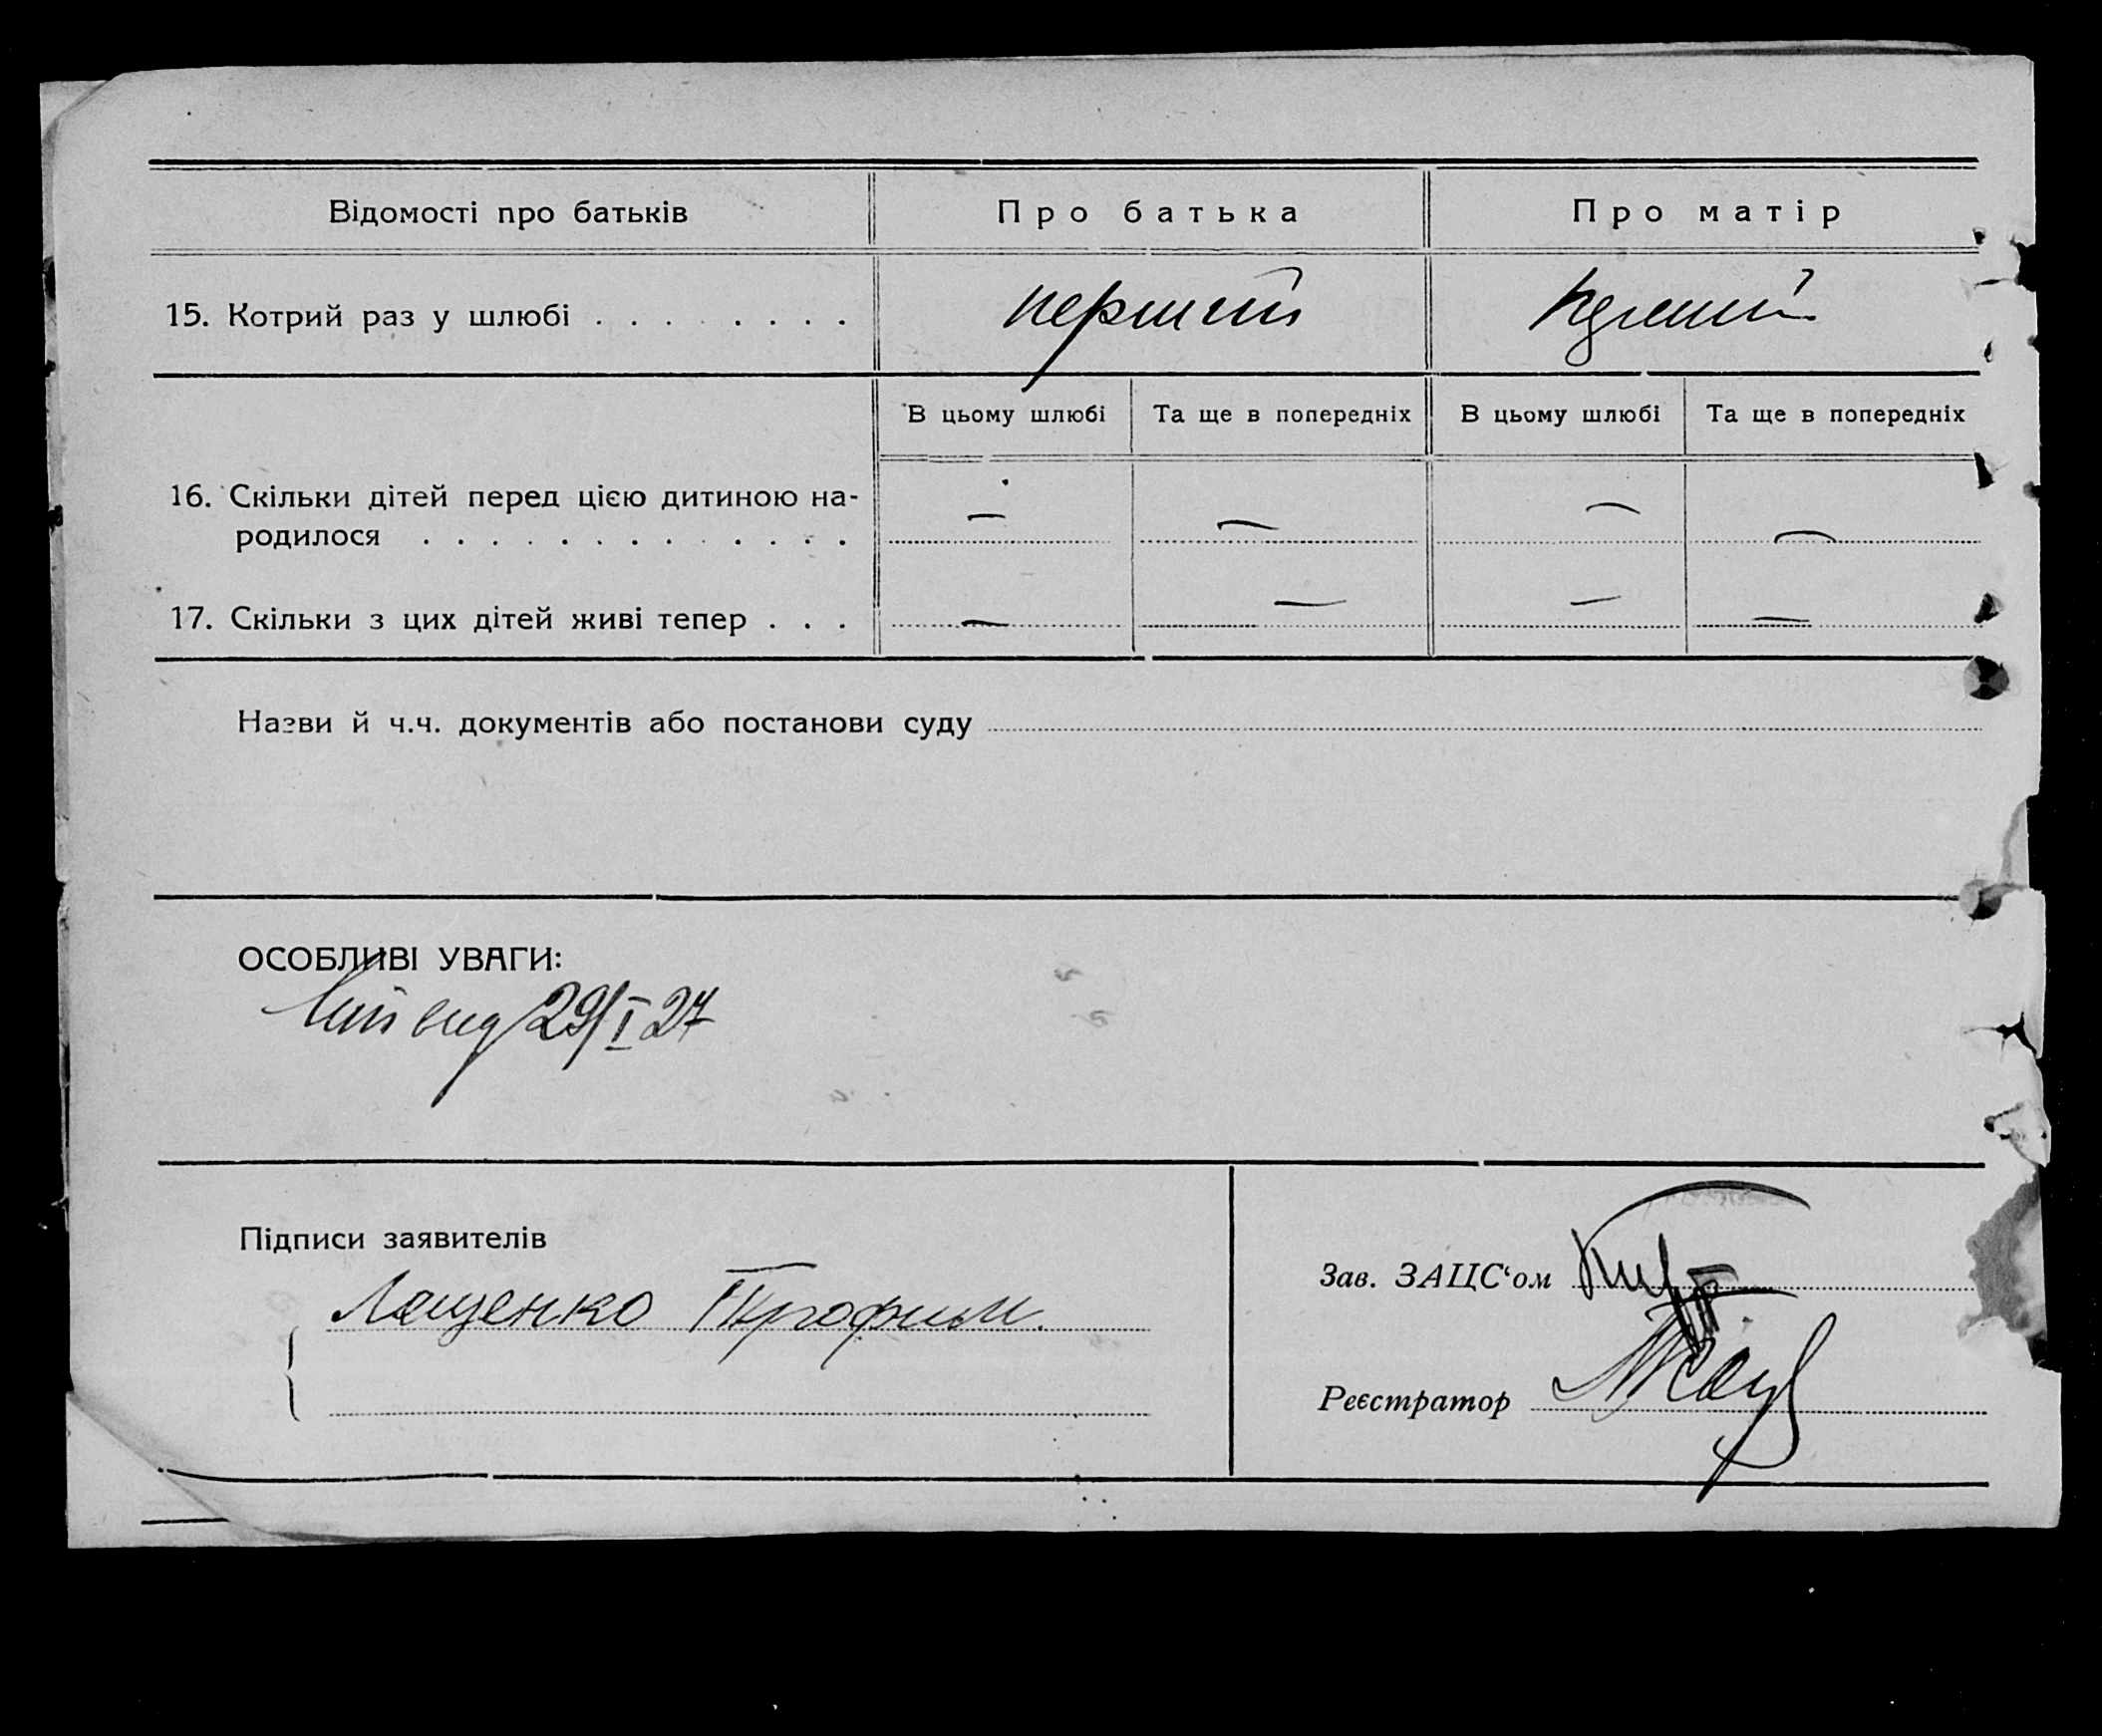 Відомості про батьків Про батька Про матір
15. Котрий раз у шлюбі . . . . . . . . перший перший
В цьому шлюбі Та ще в попередніх В цьому шлюбі Та ще в попередніх
16. Скільки дітей перед цією дитиною на-
родилося . . . . . . . . . . . . . — — — —
17. Скільки з цих дітей живі тепер . . . — — — —
Назви й ч.ч. документів або постанови суду
ОСОБЛИВІ УВАГИ:
29/I 27
Підписи заявителів
Лященко Трофим.
Зав. ЗАЦС‘ом
Реєстратор